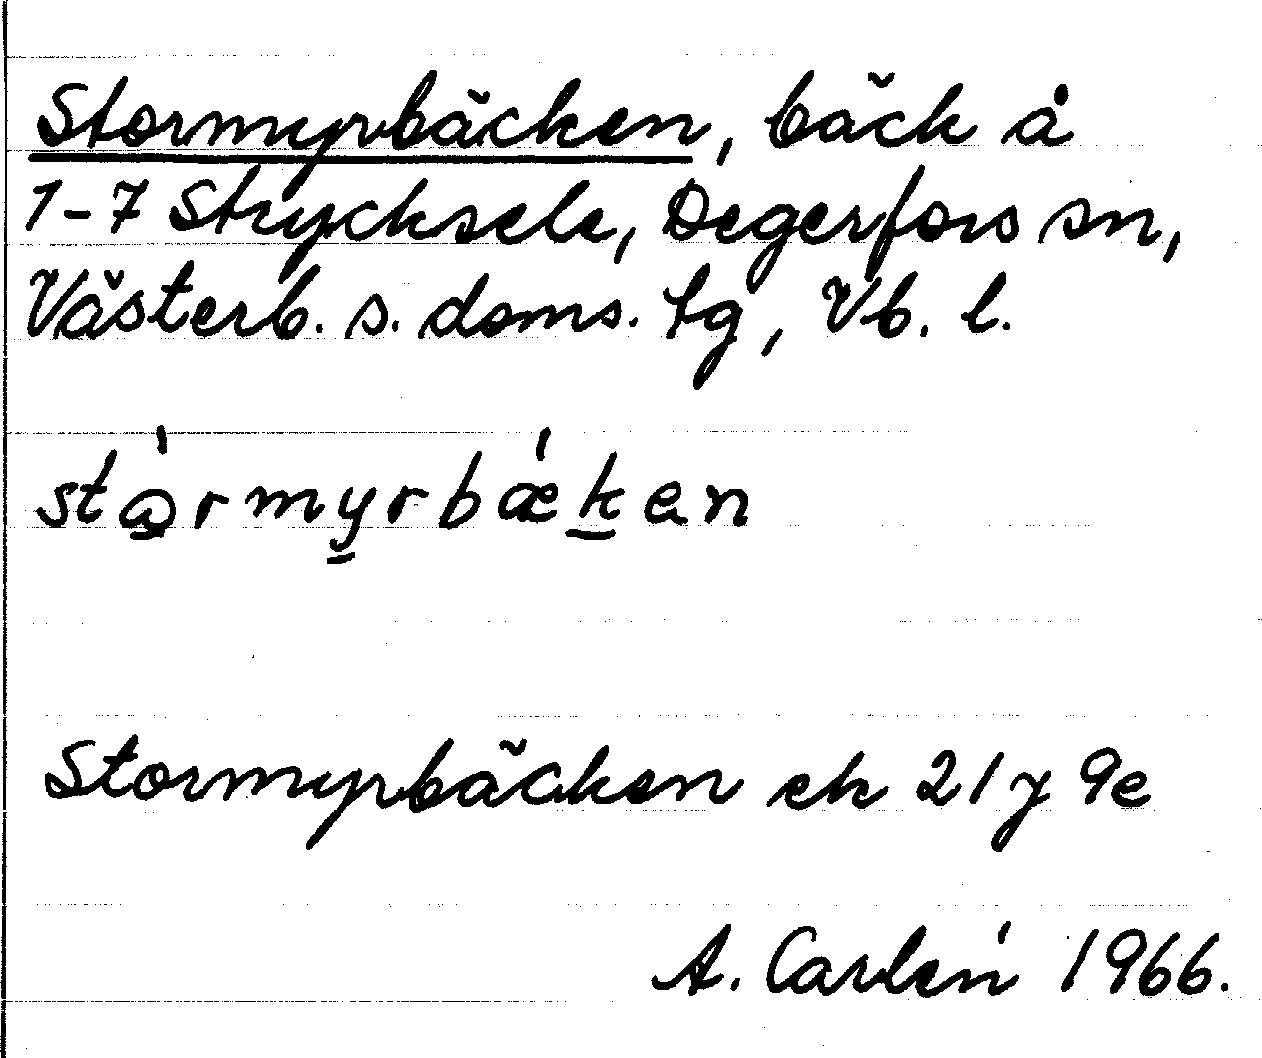 Stormyrbäcken, bäck å
1-7 Strycksele, Degerfors sn,
Västerb. s. doms. tg, Vb. l.
stǻ̱rmy̱rbǽḵen
Stormyrbäcken ek 21 J 9e
A. Carlén 1966.